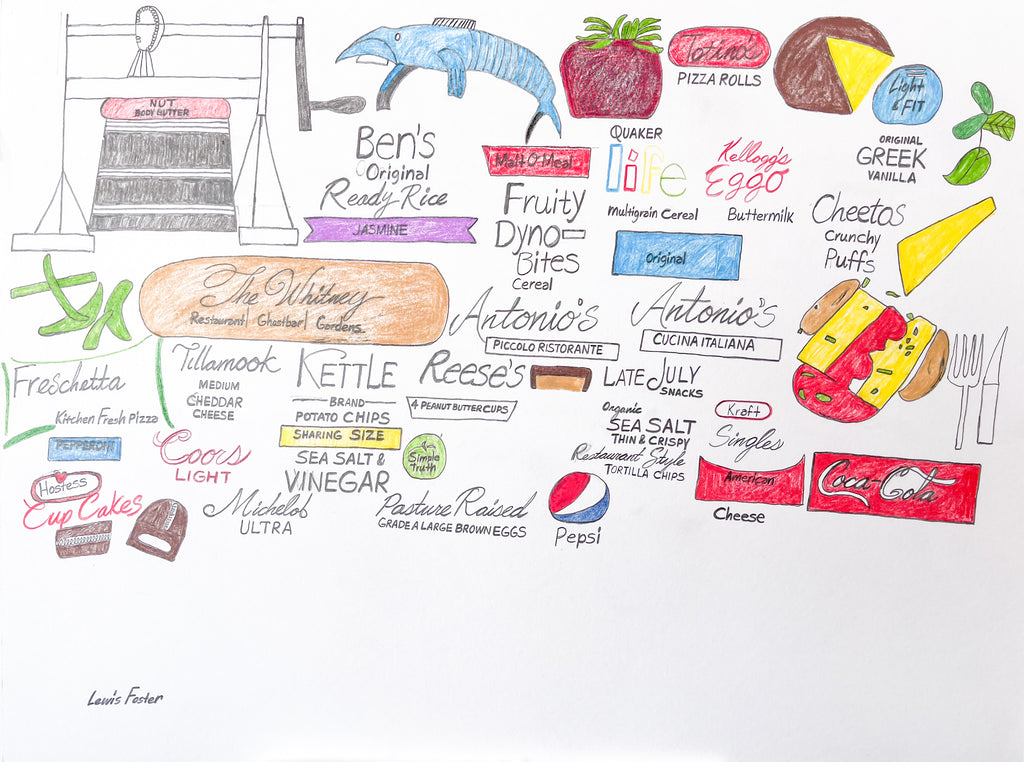 NUT
BODY BUTTER
Ben's
Original
Ready Rice
JASMINE
Malt O Meal
Fruity
Dyno-
Bites
Cereal
QUAKER
life
Multigrain Cereal
Original
Totino's
PIZZA ROLLS
Kellogg's
Eggo
Buttermilk
Light
& FIT
ORIGINAL
GREEK
VANILLA
Cheetos
Crunchy
Puffs
The Whitney
Restaurant | Ghostbar | Gardens
Antonio's
PICCOLO RISTORANTE
Antonio's
CUCINA ITALIANA
Freschetta
Kitchen Fresh Pizza
PEPPERONI
Tillamook
MEDIUM
CHEDDAR
CHEESE
KETTLE
BRAND
POTATO CHIPS
SHARING SIZE
SEA SALT &
VINEGAR
Reese's
4 PEANUT BUTTER CUPS
Simple
truth
LATE JULY
SNACKS
Organic
SEA SALT
THIN & CRISPY
Restaurant Style
TORTILLA CHIPS
Kraft
Singles
American
Cheese
Coca-Cola
Coors
LIGHT
Hostess
Cup Cakes
Michelob
ULTRA
Pasture Raised
GRADE A LARGE BROWN EGGS
Pepsi
Lewis Foster